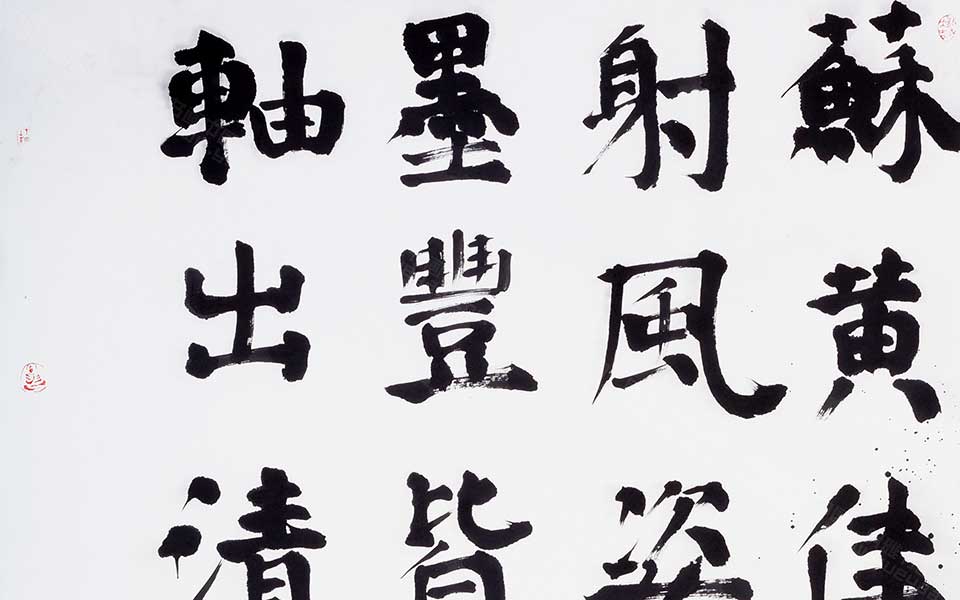 蘇黄佳
射風姿
墨豐皆
軸出清